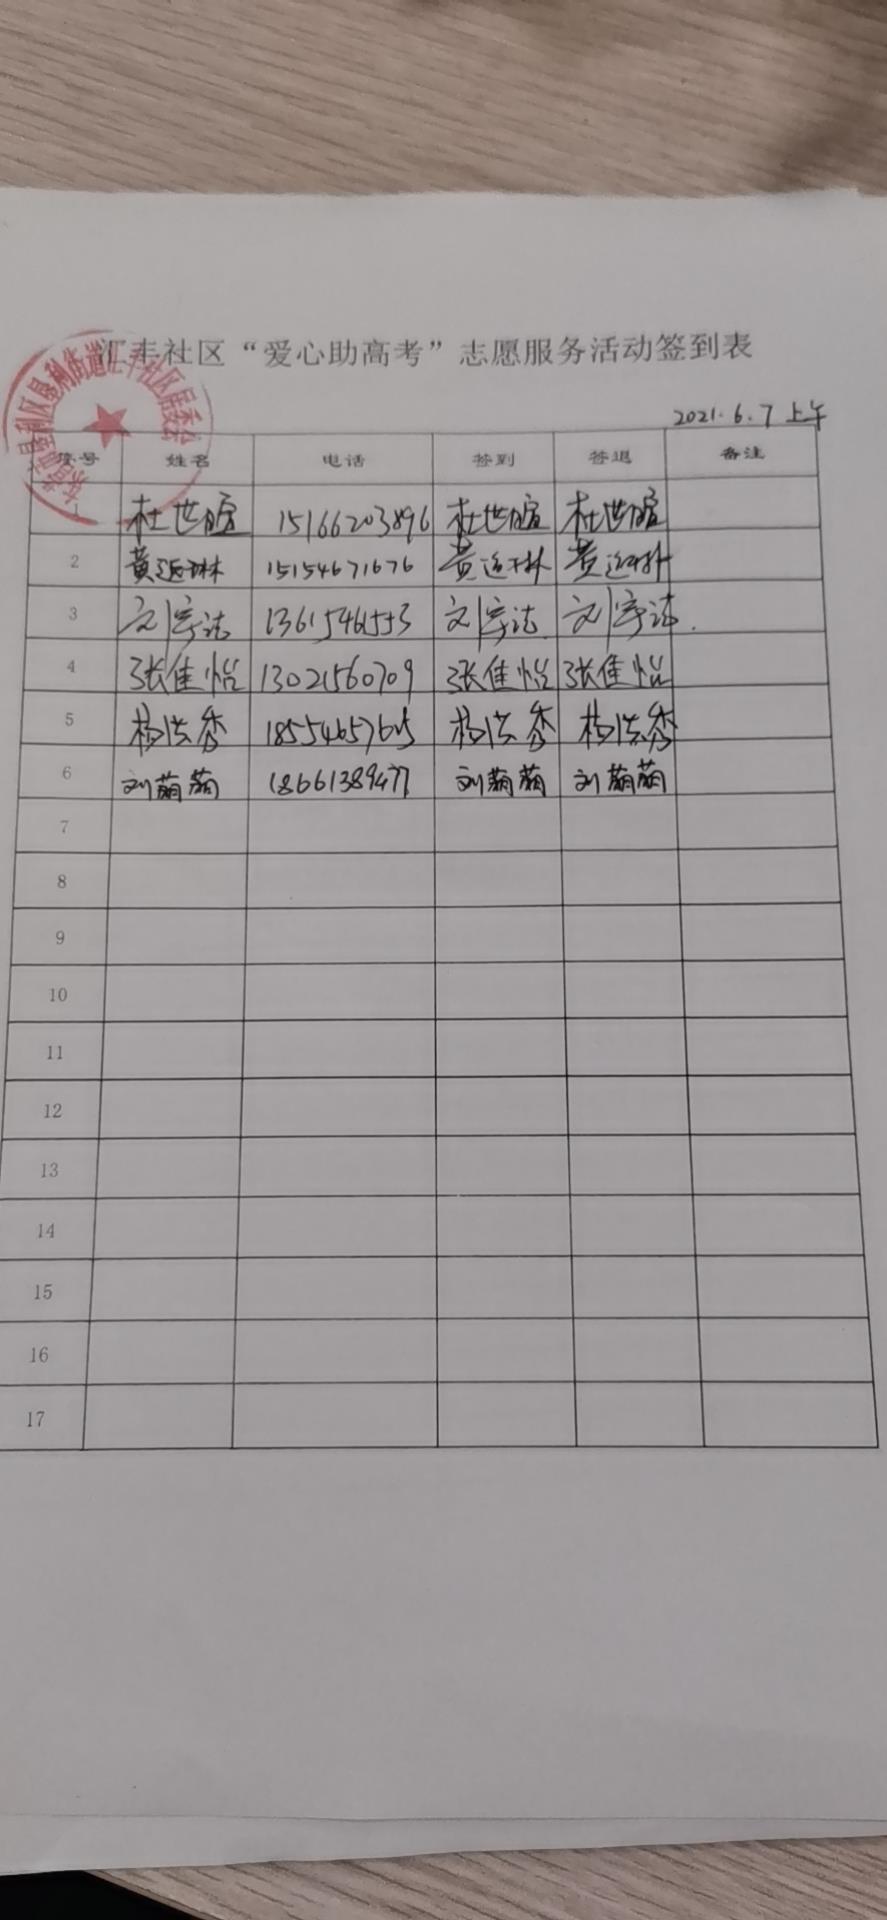 汇丰社区“爱心助高考”志愿服务活动签到表
2021.6.7 上午
序号 姓名 电话 签到 签退 备注
1 杜世暄 15166203896 杜世暄 杜世暄
2 黄远琳 15154671676 黄远琳 黄远琳
3 刘宇法 13615461553 刘宇法 刘宇法
4 张佳怡 13021560709 张佳怡 张佳怡
5 杨洪秀 杨洪秀 杨洪秀
6 刘萌萌 18661389477 刘萌萌 刘萌萌
7
8
9
10
11
12
13
14
15
16
17